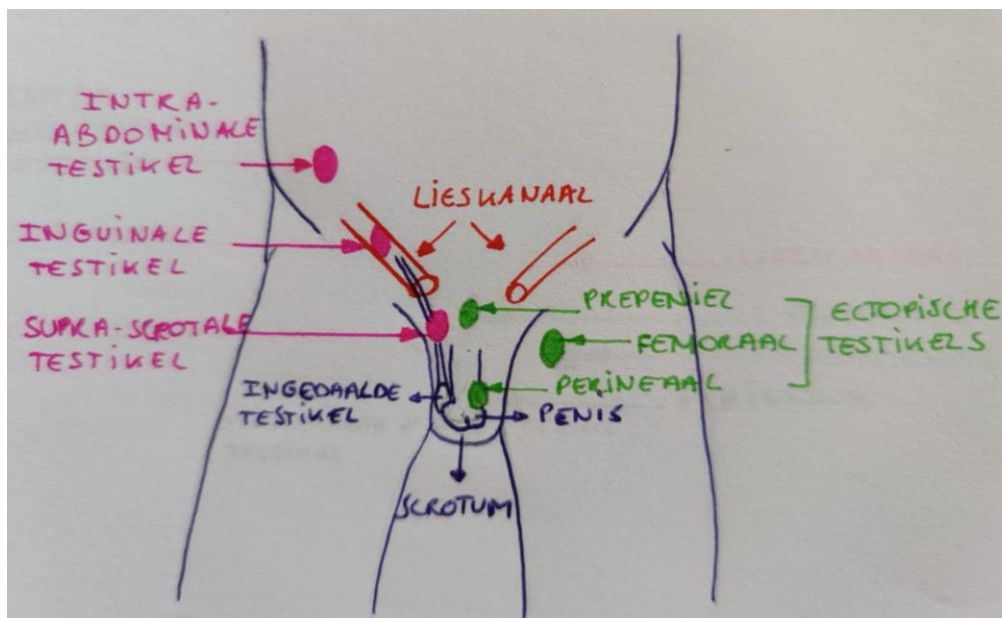 INTRA-
ABDOMINALE
TESTIKEL
LIESKANAAL
INGUINALE
TESTIKEL
SUPRA-SCROTALE
TESTIKEL
PREPENIEL
FEMORAAL
PERINEAAL
ECTOPISCHE
TESTIKELS
INGEDAALDE
TESTIKEL
PENIS
SCROTUM